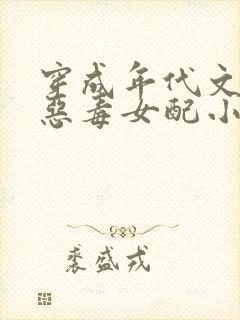 穿成年代文
恶毒女配小
裘盛戎